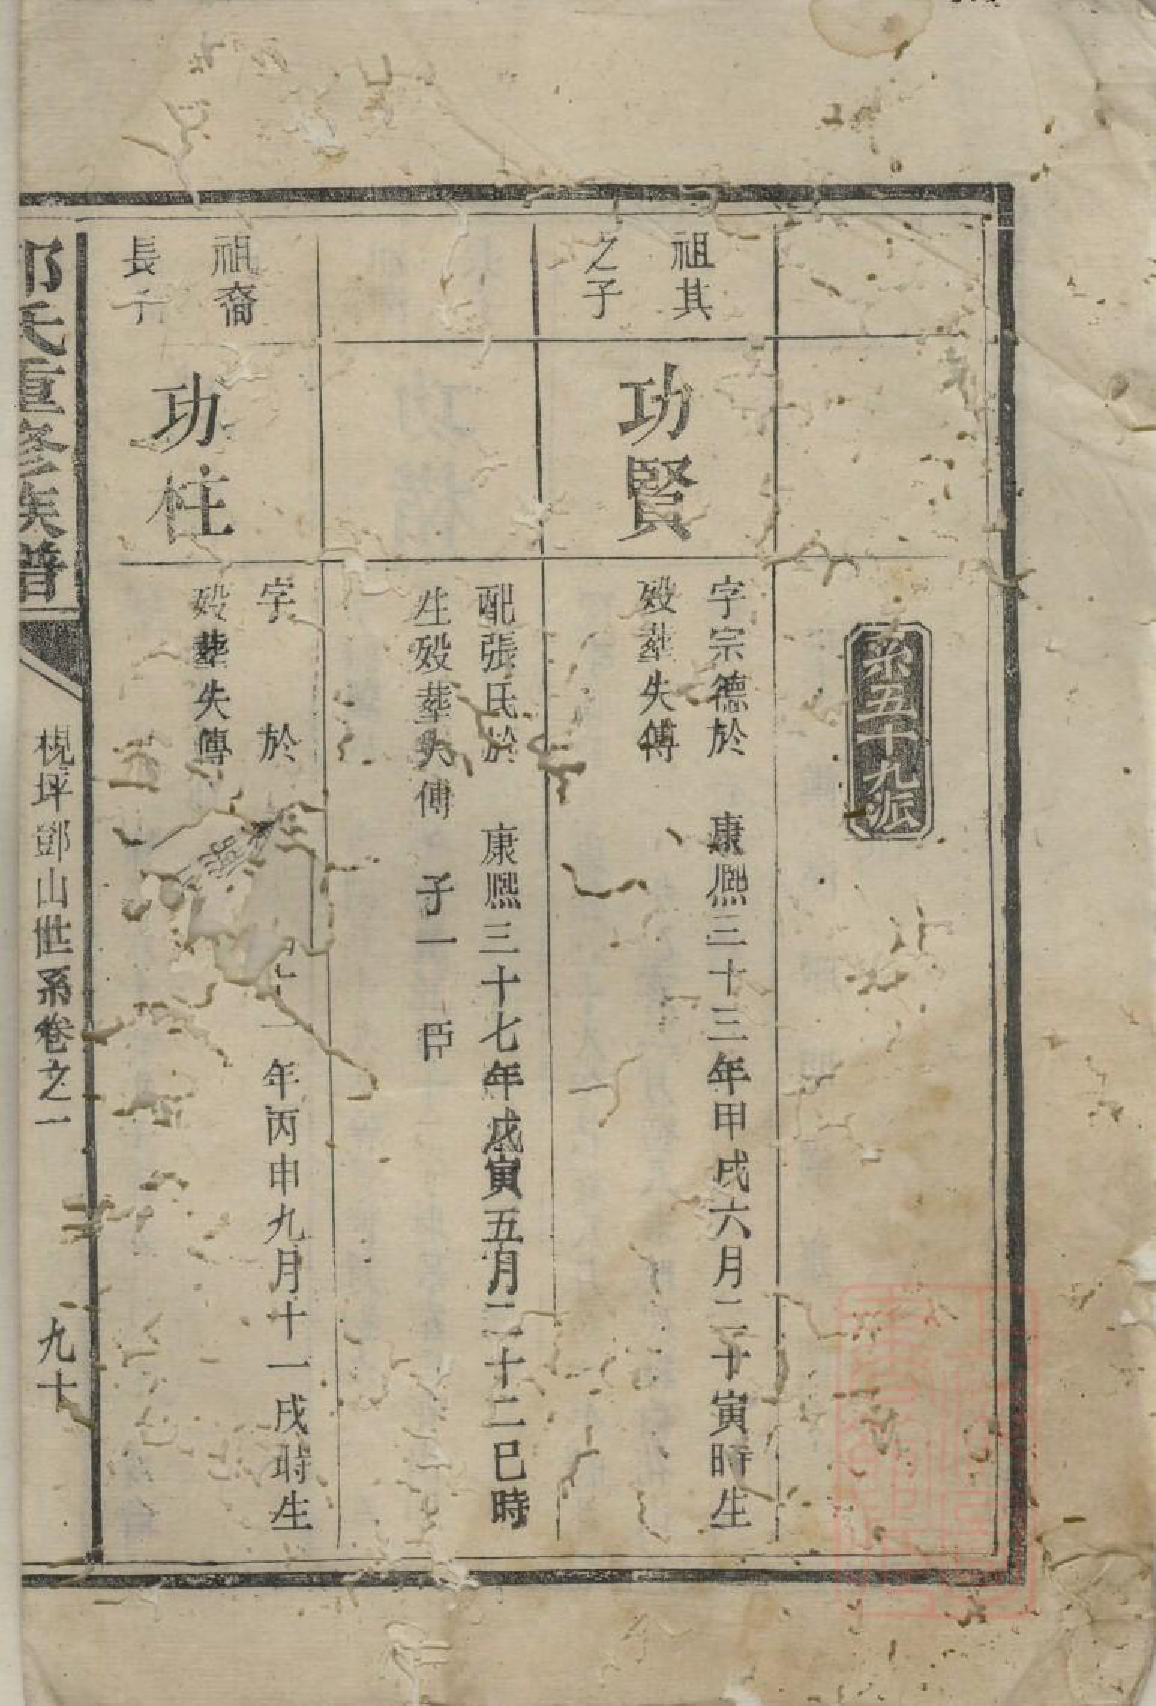 系五十九派
祖其
之子
功賢
字宗德於 康熙三十三年甲戌六月二十寅時生
歿塟失傳
配張氏於 康熙三十七年戊寅五月二十二巳時
生歿塟失傳 子一 臣
祖裔
長子
功柱
字 於 年丙申九月十一戌時生
歿塟失傳
氏重修族譜
梘坪鄧山世系卷之一
九十